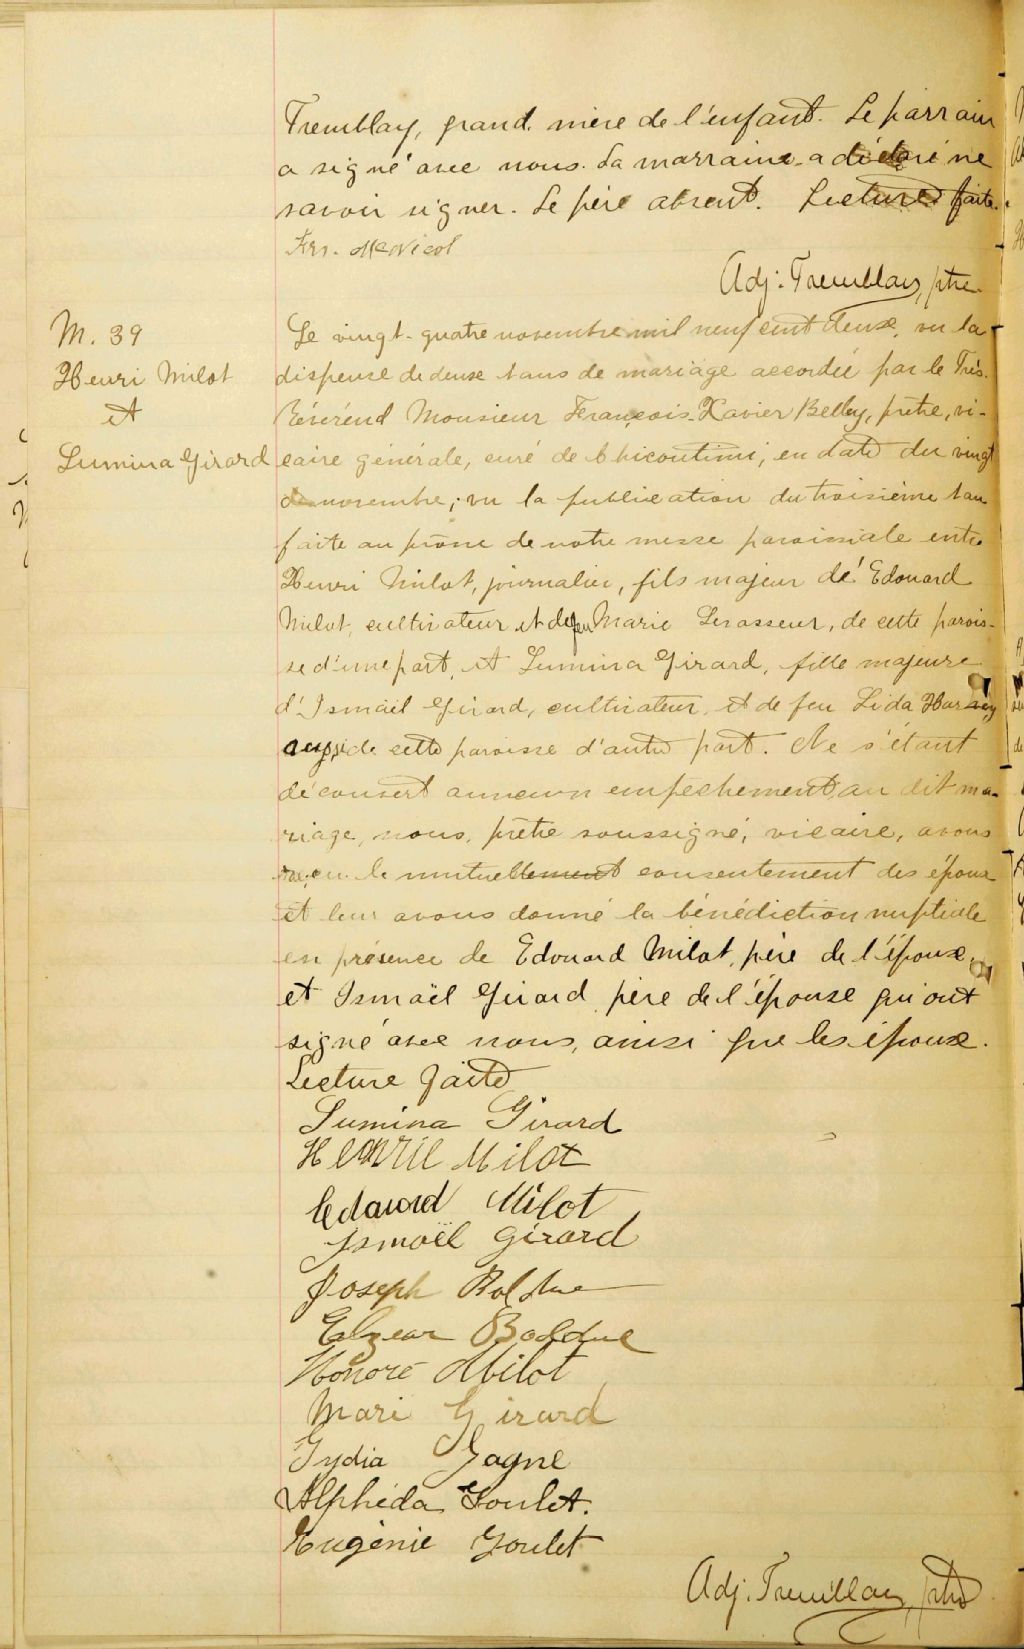 Tremblay, grand mère de l'enfant. Le parrain
a signé avec nous. La marraine a déclaré ne
savoir signer. Le père absent. Lecture faite.
Frs. McNicol
Adj. Tremblay, ptre
M. 39
Henri Milot
et
Lumina Girard
Le vingt-quatre novembre mil neuf cent deuse, vu la
dispense de deuse bans de mariage accordée par le Très-
Révérend Monsieur François-Xavier Belley, prêtre, vi-
caire générale, curé de Chicoutimi, en date du vingt
de novembre; vu la publication du troisième ban
faite au prône de notre messe paroissiale entre
Henri Milot, journalier, fils majeur de Edouard
Milot, cultivateur et de feu Marie Levasseur, de cette parois-
se d'une part, et Lumina Girard, fille majeure
d'Ismaël Girard, cultivateur, et de feu Lida Harvey
aussi de cette paroisse d'autre part. Ne s'étant
découvert aucun empêchement au dit ma-
riage, nous, prêtre soussigné, vicaire, avons
reçu le mutuellement consentement des époux
et leur avons donné la bénédiction nuptiale
en présence de Edouard Milot, père de l'époux,
et Ismaël Girard, père de l'épouse qui ont
signé avec nous, ainsi que les époux.
Lecture faite
Lumina Girard
Henrie Milot
Edouard Milot
Ismaël Girard
Joseph Bolduc
Elzear Bolduc
Honoré Milot
Mari Girard
Lydia Gagne
Alphéda Goulet.
Eugénie Goulet
Adj. Tremblay, ptre